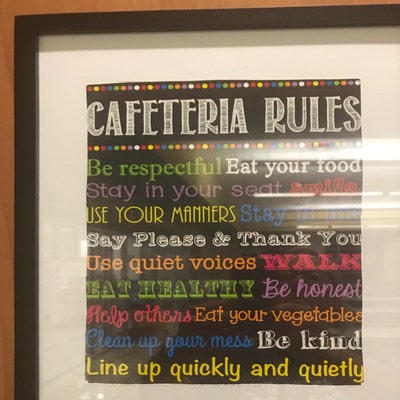 CAFETERIA RULES
Be respectful Eat your food
Stay in your seat smile
USE YOUR MANNERS Stay in line
Say Please & Thank You
Use quiet voices WALK
EAT HEALTHY Be honest
Help others Eat your vegetables
Clean up your mess Be kind
Line up quickly and quietly